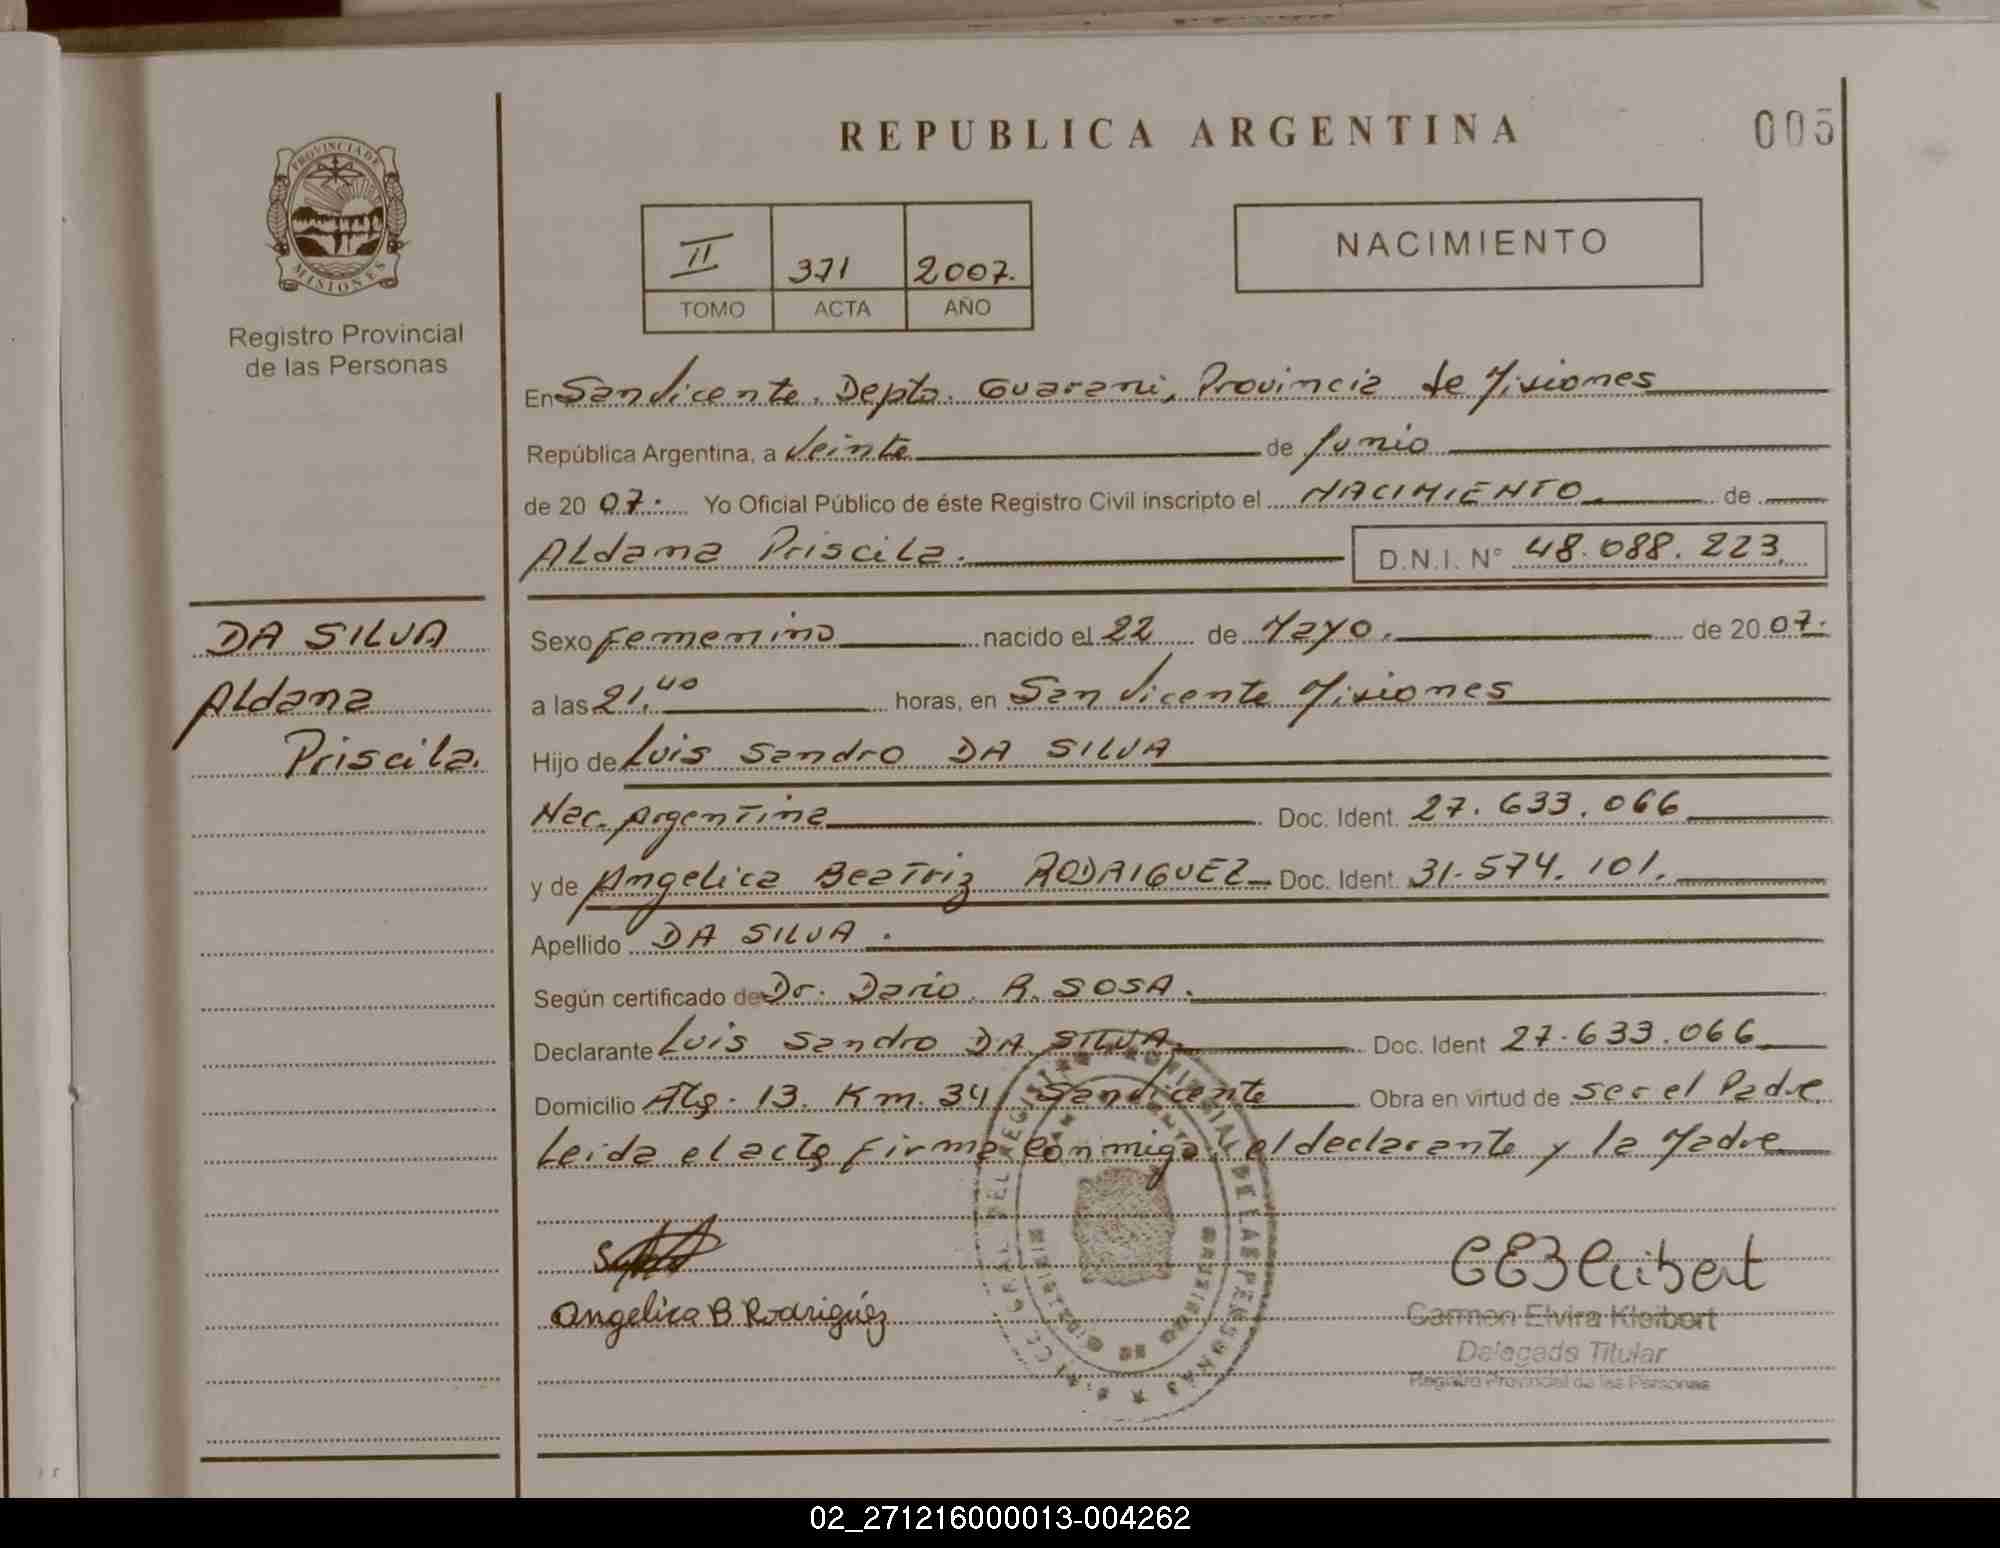 REPUBLICA ARGENTINA
005
PROVINCIA DE
MISIONES
Registro Provincial
de las Personas
II 371 2007.
TOMO ACTA AÑO
NACIMIENTO
En San Vicente. Depto. Guarani, Provincia de Misiones
República Argentina, a Veinte de Junio
de 20 07. Yo Oficial Público de éste Registro Civil inscripto el NACIMIENTO. de
Aldana Priscila. D.N.I. N° 48.088.223.
DA SILVA
Aldana
Priscila.
Sexo Femenino nacido el 22 de Mayo. de 20 07.
a las 21,40 horas, en San Vicente Misiones
Hijo de Luis Sandro DA SILVA
Nac. Argentina Doc. Ident. 27.633.066
y de Angelica Beatriz RODRIGUEZ Doc. Ident. 31.574.101.
Apellido DA SILVA.
Según certificado de Dr. Dario R. SOSA.
Declarante Luis Sandro DA SILVA. Doc. Ident 27.633.066
Domicilio Alg. 13. Km. 34 San Vicente Obra en virtud de ser el Padre
Leida el acta firma conmigo el declarante y la Madre
Angelica B Rodriguez
CEKleibert
Carmen Elvira Kleibert
Delegada Titular
Registro Provincial de las Personas
02_271216000013-004262